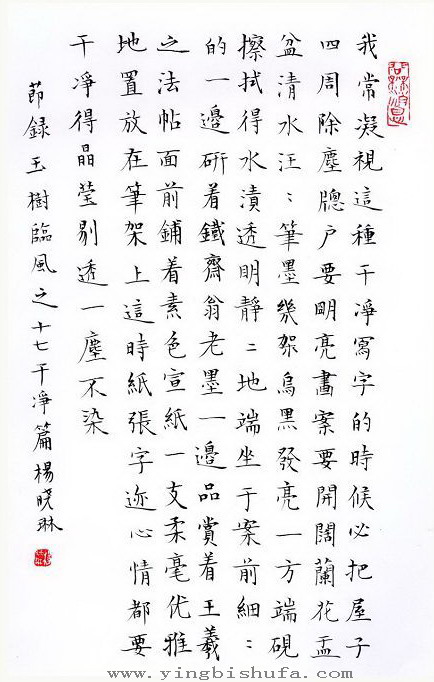 我常凝視這種干淨寫字的時候必把屋子
四周除塵牕户要眀亮畫案要開闊蘭花盂
盆清水汪〻筆墨幾架烏黑發亮一方端硯
擦拭得水漬透明靜〻地端坐于案前細〻
的一邊研着鐵齋翁老墨一邊品賞着王羲
之法帖面前鋪着素色宣紙一支柔毫优雅
地置放在筆架上這時紙張字迹心情都要
干淨得晶瑩剔透一塵不染
節録玉樹臨風之十七干淨篇楊曉琳
www.yingbishufa.com